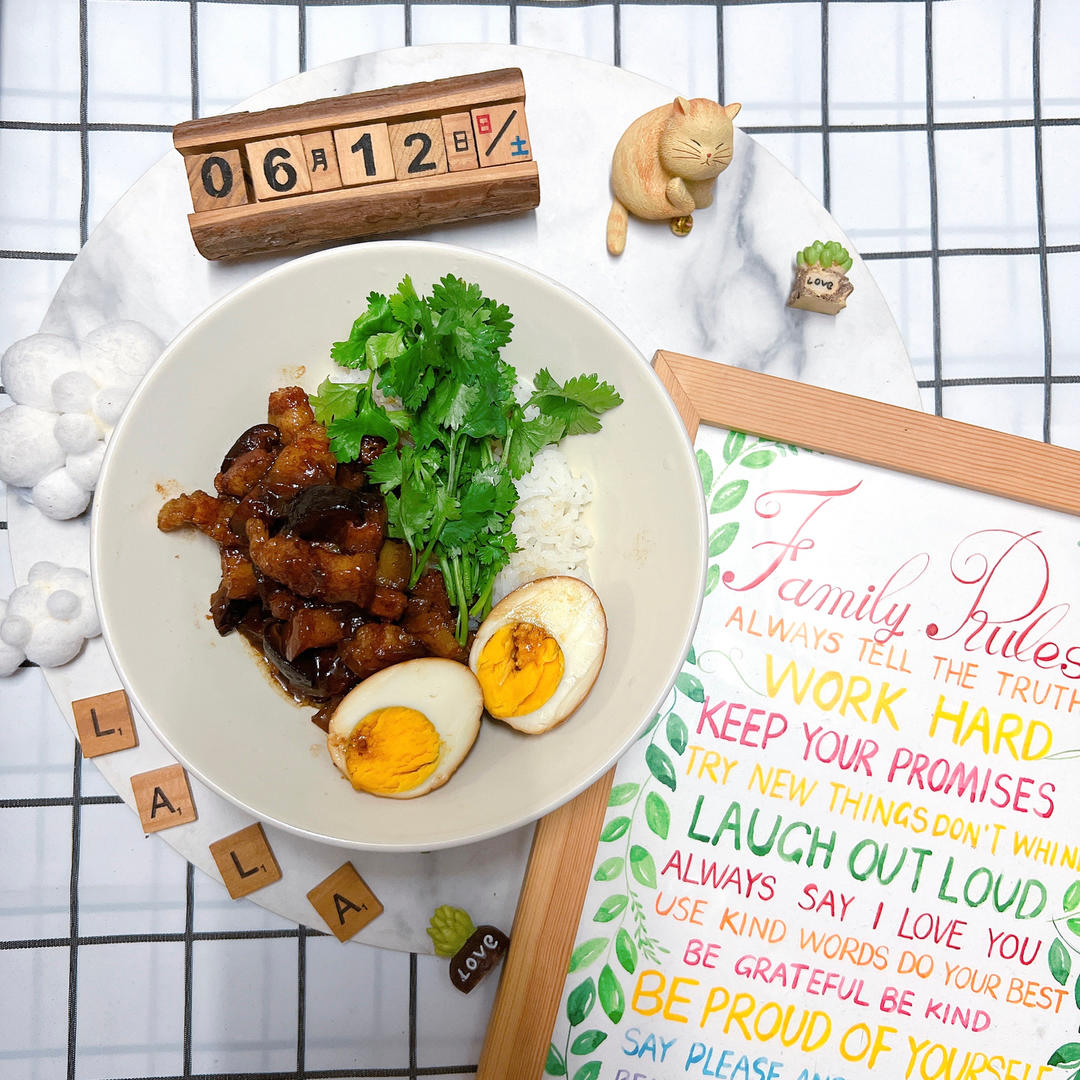 06月12日 日/土
LOVE
Family Rules
ALWAYS TELL THE TRUTH
WORK HARD
KEEP YOUR PROMISES
TRY NEW THINGS DON'T WHIN
LAUGH OUT LOUD
ALWAYS SAY I LOVE YOU
USE KIND WORDS DO YOUR BEST
BE GRATEFUL BE KIND
BE PROUD OF YOURSELF
SAY PLEASE AND
L
A
L
A
LOVE